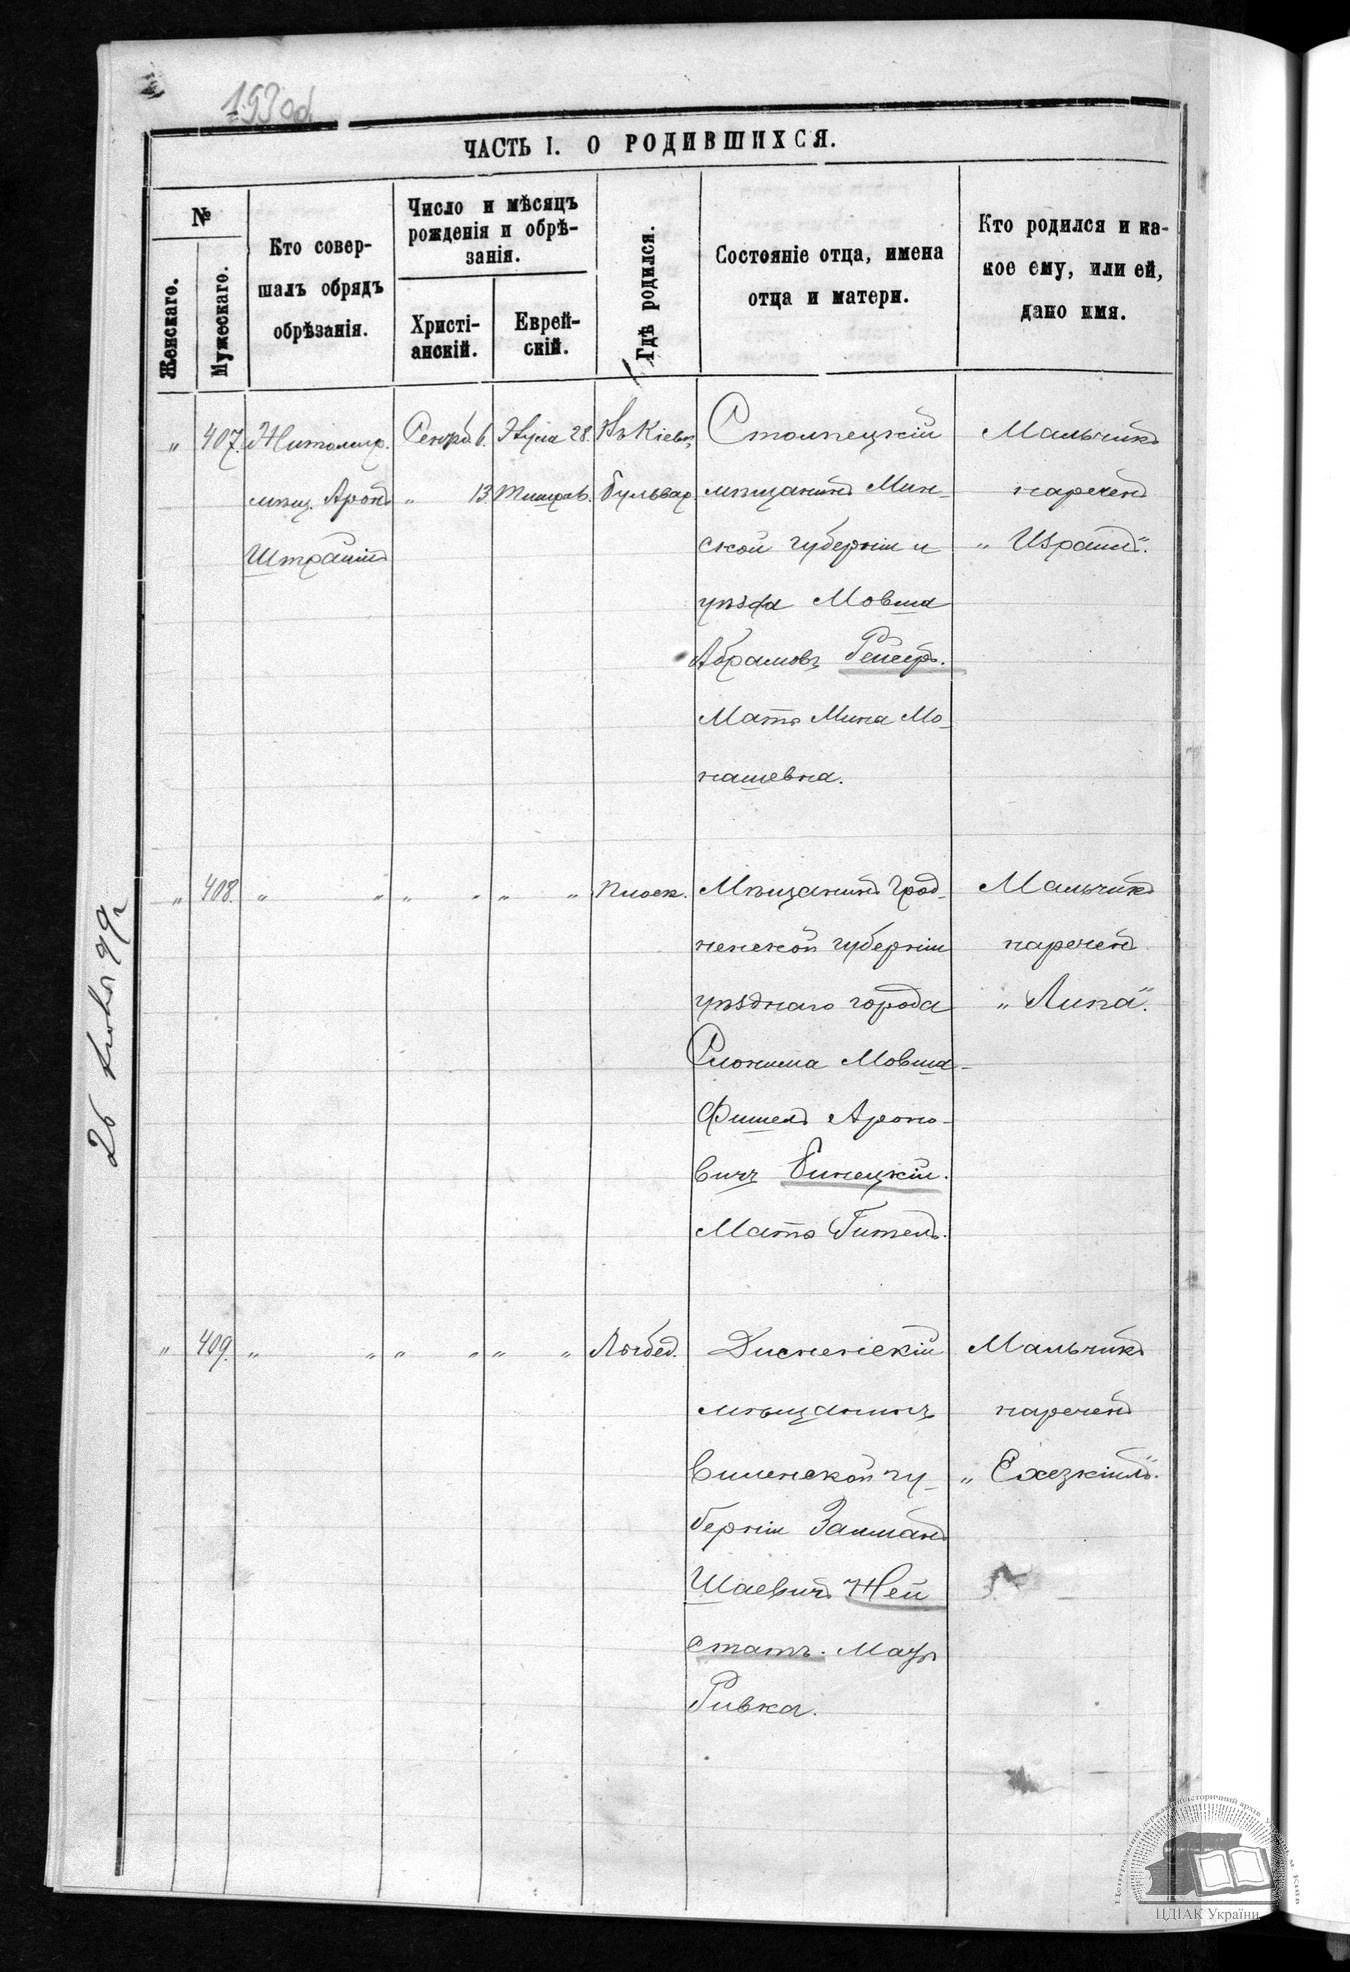 193 об
ЧАСТЬ I. О РОДИВШИХСЯ.
№
Женскаго.
Мужескаго.
Кто совер-
шалъ обрядъ
обрѣзанія.
Число и мѣсяцъ
рожденія и обрѣ-
занія.
Христі-
анскій.
Еврей-
скій.
Гдѣ родился.
Состояніе отца, имена
отца и матери.
Кто родился и ка-
кое ему, или ей,
дано имя.
„ 407.
Житомир.
мѣщ. Аронъ
6.
„ 13.
28.
Въ Кіевѣ,
Бульвар.
Столпецкій
мѣщанинъ Мин-
ской губерніи и
уѣзда Мовша
Абрамовъ
Мать Мина Мо-
нашевна.
Мальчикъ
нареченъ
„Израиль“.
„ 408. „ „ „ „ „ „
Плоск.
Мѣщанинъ Грод-
ненской губерніи
уѣзднаго города
Слонима Мовша-
Фишель Ароно-
вичъ Бинецкій.
Мать Гитель.
Мальчикъ
нареченъ
„Липа“.
„ 409. „ „ „ „ „ „
Лыбед.
Дисненскій
мѣщанинъ
Виленской гу-
берніи Залманъ
Шаевичъ Ней
статъ. Мать
Ривка.
Мальчикъ
нареченъ
„Ехезкіиль“.
26
99 г
ЦДІАК України